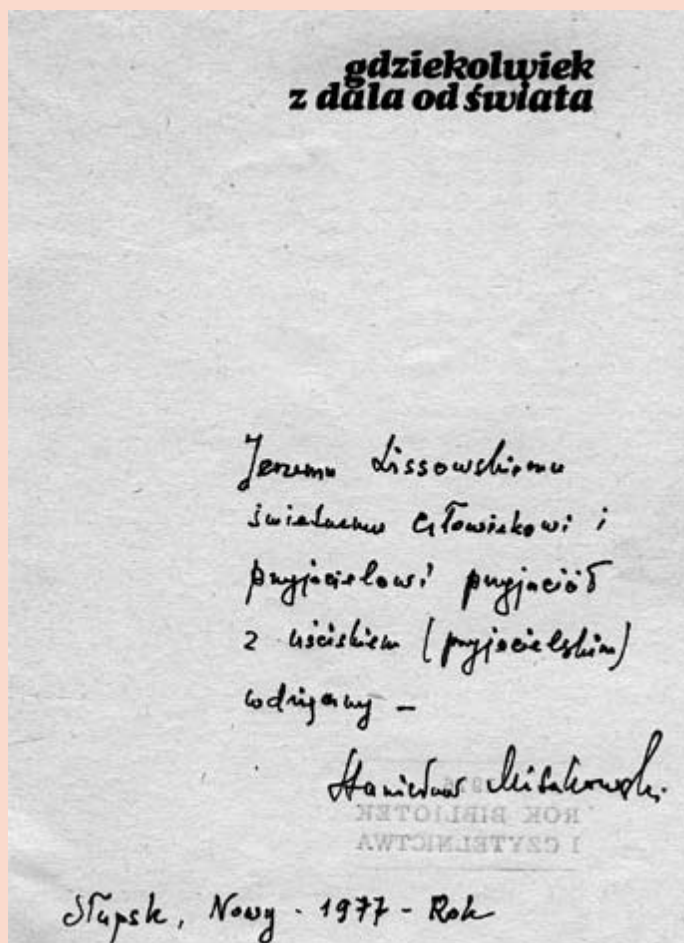 gdziekolwiek
z dala od świata
Jerzemu Lissowskiemu
świetnemu człowiekowi i
przyjacielowi przyjaciół
z uściskiem (przyjacielskim)
wdzięczny –
Stanisław Misakowski
ROK BIBLIOTEK
I CZYTELNICTWA
Słupsk, Nowy - 1977 - Rok